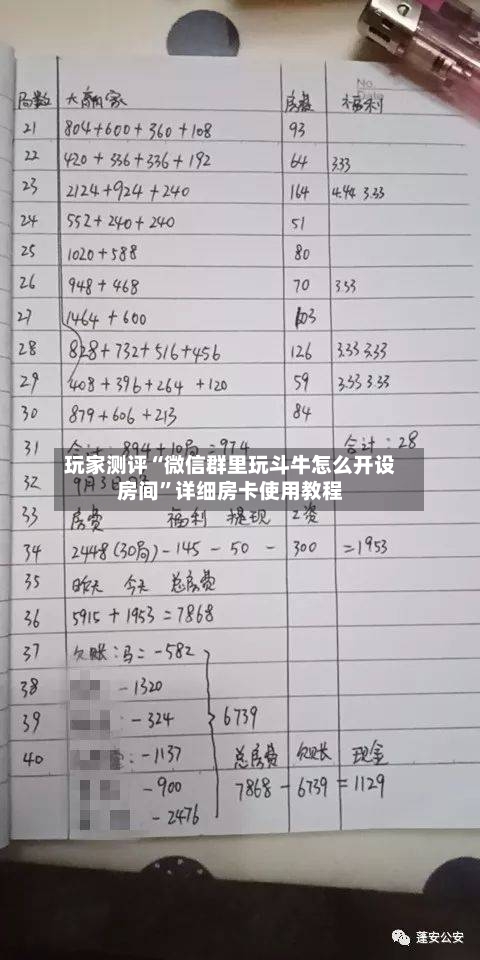 No.
Date
局数 大赢家 房费 福利
21 804+600+360+108 93
22 420+336+336+192 64 3.33
23 2124+924+240 164 4.44 3.33
24 552+240+240 51
25 1020+588 80
26 948+468 70 3.33
27 1464+600 103
28 828+732+516+456 126 3.33 3.33
29 408+396+264+120 59 3.33 3.33
30 879+606+213 84
31 合计:894+10局=974 合计:28
玩家测评“微信群里玩斗牛怎么开设
房间”详细房卡使用教程
32 9月3日
33 房费 福利 提现 工资
34 2448(30局)-145-50-300=1953
35 昨天 今天 总房费
36 5915+1953=7868
37 欠账:马:-582
38 -1320
39 -324 6739
40 -1137 总房费 欠账 现金
-900 7868-6739=1129
-2476
蓬安公安